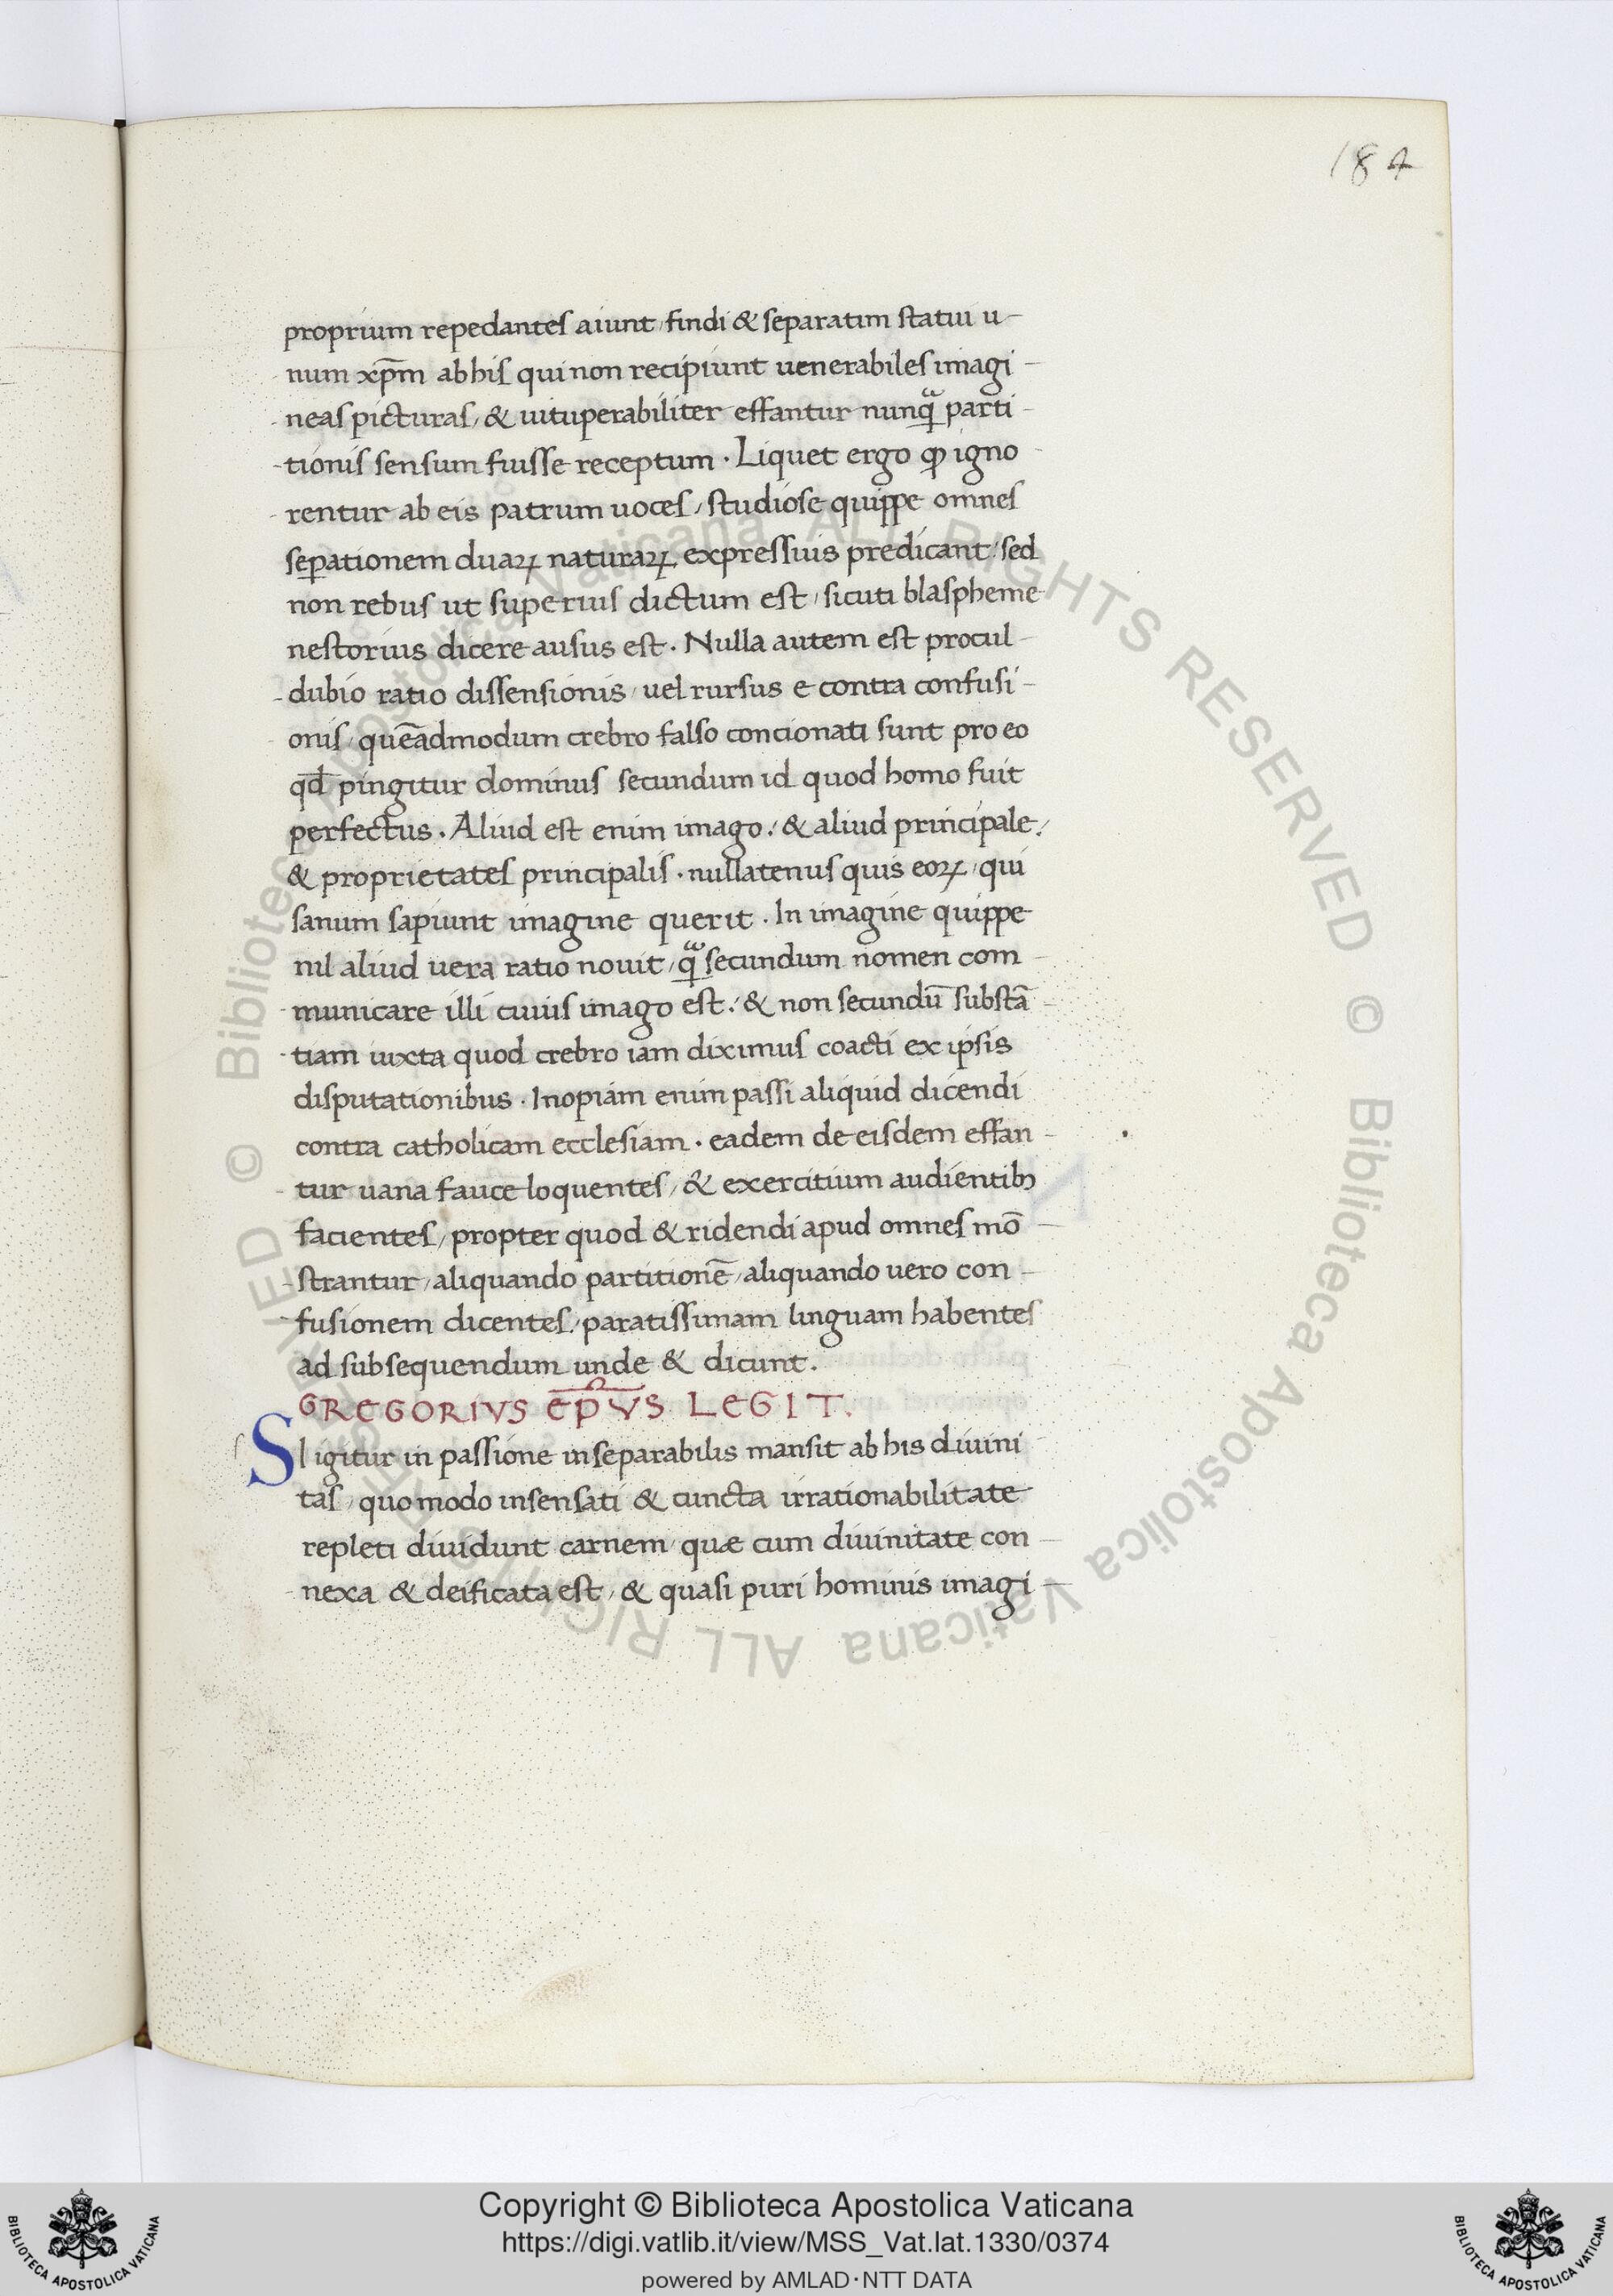 184
proprium repedantes aiunt / findi & separatim statui u-
num xp̄m ab his qui non recipiunt uenerabiles imagi-
neas picturas / & uituperabiliter effantur nunqᷓ parti-
tionis sensum fuisse receptum . Liquet ergo ꝙ igno-
rentur ab eis patrum uoces / studiose quippe omnes
seꝑationem duaꝝ naturaꝝ expressius predicant / sed
non rebus ut superius dictum est / sicuti blaspheme
nestorius dicere ausus est . Nulla autem est procul-
dubio ratio dissensionis / uel rursus e contra confusi-
onis / quēadmodum crebro falso concionati sunt pro eo
qđ pingitur dominus secundum id quod homo fuit
perfectus . Aliud est enim imago ./ & aliud principale ./
& proprietates principalis . nullatenus quis eoꝝ / qui
sanum sapiunt imagine querit . In imagine quippe
nil aliud uera ratio nouit / qᷓ secundum nomen com-
municare illi cuius imago est ./ & non secundū substā-
tiam iuxta quod crebro iam diximus coacti ex ipsis
disputationibus . Inopiam enim passi aliquid dicendi
contra catholicam ecclesiam . eadem de eisdem effan-
tur uana fauce loquentes / & exercitium audientibꝫ
facientes / propter quod & ridendi apud omnes mō-
strantur / aliquando partitionē / aliquando uero con-
fusionem dicentes ./ paratissimam linguam habentes
ad subsequendum unde & dicunt .
GREGORIVS EP̄VS LEGIT.
SI igitur in passione inseparabilis mansit ab his diuini-
tas / quomodo insensati & cuncta irrationabilitate
repleti diuidunt carnem / quæ cum diuinitate con-
nexa & deificata est / & quasi puri hominis imagi-
© Biblioteca Apostolica Vaticana ALL RIGHTS RESERVED © Biblioteca Apostolica Vaticana ALL RIGHTS RESERVED
Copyright © Biblioteca Apostolica Vaticana
https://digi.vatlib.it/view/MSS_Vat.lat.1330/0374
powered by AMLAD·NTT DATA
BIBLIOTECA APOSTOLICA VATICANA
BIBLIOTECA APOSTOLICA VATICANA